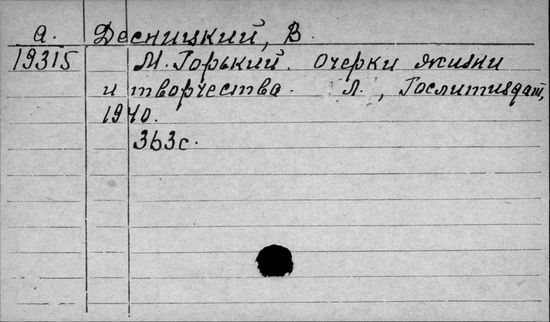 а. Десницкий, В.
19315 М. Горький. Очерки жизни
и творчества. Л., Гослитиздат,
1940.
363с.